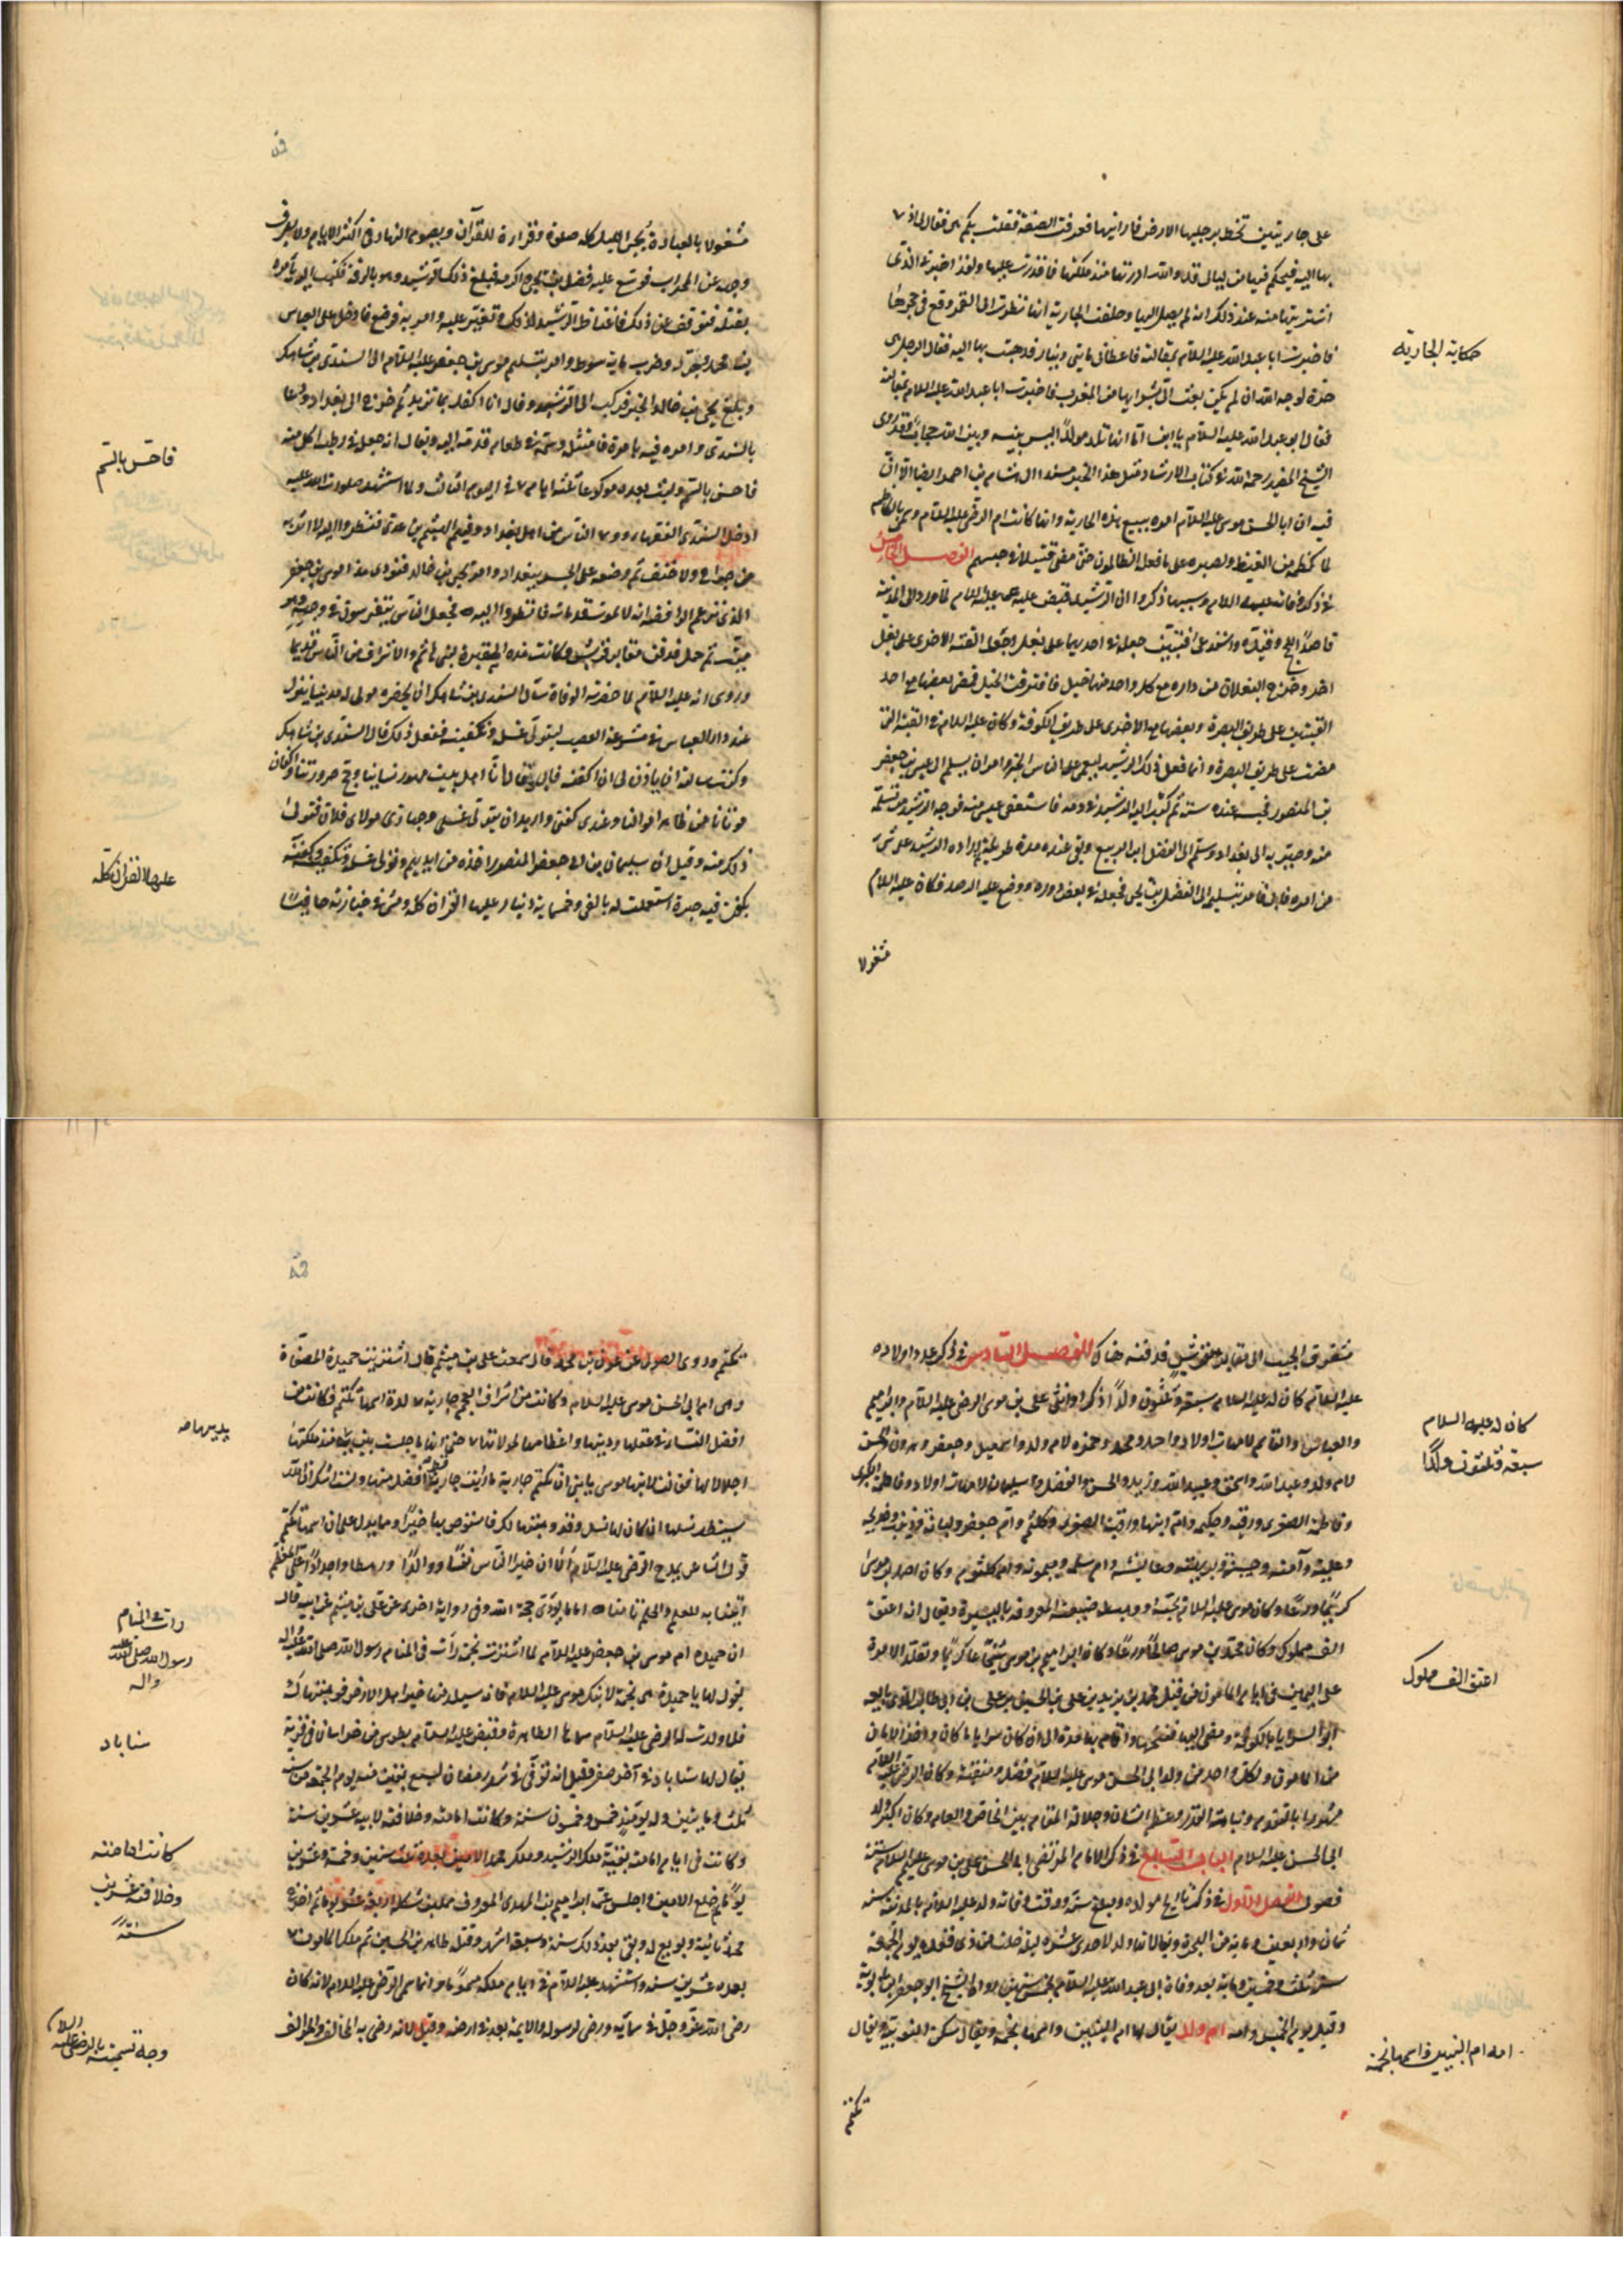 على جاريتين تخط برجليها الارض فاراينها فعرفت الصفة فقلت بكم هى فقال لى اذهب
بها اليه فيحكم فيها
اشتريتها منه عند ذلك انه لم يصل اليها وحلفت الجارية انها نظرت الى القمر وقع فى حجرها
فاخبرت ابا عبد الله عليه السلام بمقالته فاعطانى مايتى دينار فذهبت بها اليه فقال الرجل هى
حرة لوجه الله ان لم يكن بعث الى بشرايها من المغرب فاخبرت ابا عبد الله عليه السلام بمقالته
فقال ابو عبد الله عليه السلام يا ابن احمد اما انها تلد مولودا ليس بينه وبين الله حجاب وقد روى
الشيخ المفيد رحمه الله فى كتاب الارشاد مثل هذا الخبر مسندا الى هشام بن احمد ايضا الا ان
فيه ان ابا الحسن موسى عليه السلام امره ببيع هذه الجارية وانها كانت ام الرضى عليه السلام وسمى بالكاظم
لما كظمه من الغيظ وصبره على ما فعل الظالمون حتى مضى قتيلا فى حبسهم الفصل الخامس
فى ذكر وفاته عليه السلام وسببها ذكروا ان الرشيد قبض عليه عليه السلام لما ورد الى المدينة
قاصدا للحج وقيده واستدعى قبتين جعله فى احديهما على بغل وجعل القبة الاخرى على بغل
اخر وخرج البغلان من داره مع كل واحد منهما خيل فافترقت الخيل فمضى بعضها مع احد
القبتين على طريق البصرة وبعضها مع الاخرى على طريق الكوفة وكان عليه السلام فى القبة التى
مضت على طريق البصرة وانما فعل ذلك الرشيد ليعمى على الناس الخبر وامر ان يسلم الى عيسى بن جعفر
بن المنصور فحبسه عنده سنة ثم كتب اليه الرشيد فى دمه فاستعفى عيسى منه فوجه الرشيد من تسلمه
منه وصير به الى بغداد وسلم الى الفضل بن الربيع وبقى عنده مدة طويلة ثم اراده الرشيد على شىء
من امره فابى فامر بتسليمه الى الفضل بن يحيى فجعله فى بعض دوره ووضع عليه الرصد فكان عليه السلام
مشغولا
حكاية الجارية
مشغولا بالعبادة يحيى الليل كله صلوة وقراءة للقرآن ويصوم النهار فى اكثر الايام ولا يصرف
وجهه عن المحراب فوسع عليه فضل بن يحيى واكرمه فبلغ ذلك الرشيد وهو بالرقة فكتب اليه يأمره
بقتله فتوقف عن ذلك فاغتاظ الرشيد لذلك وتغير عليه وامر به فادخل على العباس
بن محمد وجرد وضرب ماية سوط وامر بتسليم موسى بن جعفر عليه السلام الى السندى بن شاهك
وبلغ يحيى بن خالد الخبر فركب الى الرشيد وقال انا اكفل بما تريد ثم خرج الى بغداد ودعا
بالسندى وامره فيه بامره فامتثله وسمه فى طعام قدمه اليه ويقال انه جعله فى رطب اكل منه
فاحس بالسم ولبث بعده موعوكا ثلثة ايام ومات فى اليوم الثالث ولما استشهد صلوات الله عليه
ادخل السندى الفقهاء ووجوه الناس من اهل بغداد وفيهم الهيثم بن عدى فنظروا اليه لا اثر به
من جراح ولا خنق ثم وضعه على الجسر ببغداد وامر يحيى بن خالد فنودى هذا موسى بن جعفر
الذى تزعم الرافضة انه لا يموت قد مات فانظروا اليه فجعل الناس يتفرسون فى وجهه وهو
ميت ثم حمل فدفن فى مقابر قريش وكانت هذه المقبرة لبنى هاشم والاشراف من الناس قديما
وروى انه عليه السلام لما حضرته الوفاة سأل السندى بن شاهك ان يحضره مولى له مدنيا ينزل
عند دار العباس فى مشرعة القصب ليتولى غسله وتكفينه ففعل ذلك قال السندى بن شاهك
وكنت سألته ان ياذن لى ان اكفنه فابى وقال انا اهل بيت مهور نسائنا وحج صرورتنا واكفان
موتانا من طاهر اموالنا وعندى كفنى واريد ان يتولى غسلى وجهازى مولاى فلان فتولى
ذلك منه وقيل ان سليمان بن ابى جعفر المنصور اخذه من ايديهم وتولى غسله وتكفينه وكفنه
بكفن فيه حبرة استعملت له بالفى وخمسماية دينار عليها القران كله ومشى فى جنازته حافيا
فاحس بالسم
عليها القران كله
مشقوق الجيب الى مقابر قريش فدفنه هناك الفصل السادس فى ذكر عدد اولاده
عليه السلام كان له عليه السلام سبعة وثلثون ولدا ذكرا وانثى على بن موسى الرضى عليه السلام وابراهيم
والعباس والقاسم لامهات اولاد واحمد ومحمد وحمزه لام ولد واسمعيل وجعفر وهرون والحسن
لام ولد وعبد الله واسحق وعبيد الله وزيد والحسن والفضل وسليمان لامهات اولاد وفاطمة الكبرى
وفاطمة الصغرى ورقيه وحكيمه وام ابيها ورقيه الصغرى وكلثم وام جعفر ولبانة وزينب وخديجه
وعلية وآمنه وحسنة وبريهة وعايشه وام سلمه وميمونه وام كلثوم وكان احمد بن موسى
كريما ورعا وكان موسى عليه السلام يحبه ووهب له ضيعته المعروفه باليسيرة ويقال انه اعتق
الف مملوك وكان محمد بن موسى صالحا ورعا وكان ابراهيم بن موسى شجاعا كريما وتقلد الامرة
على اليمن فى ايام المامون من قبل محمد بن زيد بن على بن الحسين بن على بن ابى طالب الذى بايعه
ابو السرايا بالكوفة ومضى اليها ففتحها واقام بها مدة الى ان كان من ابى السرايا ما كان واخذ الامان
من المامون ولكل واحد من ولد ابى الحسن موسى عليه السلام فضل ومنقبة وكان الرضى عليه السلام
مشهورا بالتقدم ونباهة القدر وعظم الشان وجلالة المقام بين الخاص والعام وكان اكبر ولد
ابى الحسن عليه السلام الباب السابع فى ذكر الامام المرتضى ابى الحسن على بن موسى عليهم السلام ستة
فصول الفصل الاول فى ذكر تاريخ مولده ومبلغ سنه ووقت وفاته ولد عليه السلام بالمدينة سنه
ثمان واربعين وماية من الهجرة ويقال انه ولد لاحدى عشره ليلة خلت من ذى قعده يوم الجمعة
سنة ثلث وخمسين وماية بعد وفاة ابى عبد الله عليه السلام بخمس سنين رواه الشيخ ابو جعفر ابن بابويه
وقيل يوم الخميس وامه ام ولد يقال لها ام البنين واسمها نجمة ويقال سكن النوبية ويقال
تكتم
كان له عليه السلام
سبعة وثلثون ولدا
اعتق الف مملوك
امه ام البنيين واسمها نجمة
تكتم وروى الصولى عن عون بن محمد قال سمعت على بن ميثم قال اشترت حميدة المصفاة
وهى ام ابى الحسن موسى عليه السلام وكانت من اشراف العجم جارية مولدة اسمها تكتم فكانت من
افضل النساء فى عقلها ودينها واعظامها لمولاتها حتى انها ما جلست بين يديها منذ ملكتها
اجلالا لها فقالت لابنها موسى يا بنى ان تكتم جارية ما رايت جارية قط افضل منها ولست اشك ان الله
سيطهر نسلها ان كان لها نسل وقد وهبتها لك فاستوص بها خيرا ومما يدل على ان اسمها تكتم
قول الشاعر يمدح الرضى عليه السلام الا ان خير الناس نفسا ووالدا ورهطا واجدادا على المعظم
اتتنا به للعلم والحلم ثامنا اماما يؤدى حجة الله وفى رواية اخرى عن على بن ميثم عن ابيه قال
ان حميده ام موسى بن جعفر عليه السلام لما اشترت نجمة رأت فى المنام رسول الله صلى الله عليه واله
يقول لها يا حميدة هى نجمة لابنك موسى عليه السلام فانه سيلد منها خير اهل الارض فوهبتها له
فلما ولدت له الرضى عليه السلام سماها الطاهرة وقبض عليه السلام بطوس من خراسان فى قرية
يقال لها سناباد فى آخر صفر وقيل انه توفى فى شهر رمضان لسبع بقين منه يوم الجمعة من سنه
ثلث ومايتين وله يومئذ خمس وخمسون سنة وكانت امامته وخلافته لابيه عشرين سنة
وكانت فى ايام امامته بقية ملك الرشيد وملك محمد الامين بعده ثلث سنين وخمسة وعشرين
يوما ثم خلع الامين واجلس عمه ابراهيم بن المهدى المعروف بابن شكلة اربعة عشر يوما ثم اخرج
محمد ثانية وبويع له وبقى بعد ذلك سنة وسبعة اشهر وقتله طاهر بن الحسين ثم ملك المامون
بعده عشرين سنه واستشهد عليه السلام فى ايام ملكه مسموما وانما سمى الرضى عليه السلام لانه كان
رضى الله عز وجل فى سمائه ورضى لرسوله والايمة بعده فى ارضه وقيل لانه رضى به المخالف والموالف
رات فى المنام
رسول الله صلى الله عليه
واله
سناباد
كانت امامته
وخلافته عشرين
سنة
وجه تسميته بالرضى عليه السلام